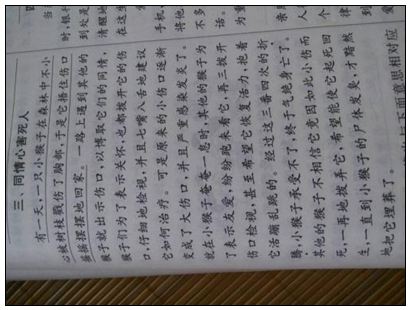 三、同情心害死人
有一天,一只小猴子在森林中不小
心被树枝戳伤了胸部,于是它捂住伤口
摇摇摆摆地回家。一路上遇到其他的
猴子就出示伤口,以博取它们的同情,
猴子们为了表示关怀,也都拨开它的伤
口,仔细地检视,并且七嘴八舌地建议
它如何治疗。可是原来的小伤口逐渐
变成了大伤口,并且严重感染发炎了。
就在小猴子奄奄一息时,其他的猴子为
了表示友爱,纷纷跑来看它,再三拨开
伤口检视,甚至希望它恢复活力,抱着
它活蹦乱跳的。经过这三番四次的折
腾,小猴子承受不了,终于气绝身亡了。
其他的猴子不相信它竟因如此小伤而
死,一再地拔弄它,希望能使它起死回
生,一直到小猴子的尸体发臭,才黯然
地把它埋葬了。
与下面意思相对应